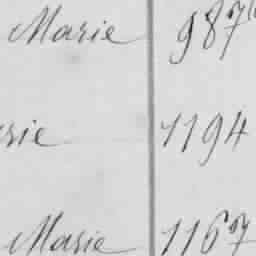 Marie 987
rie 1194
Marie 1167